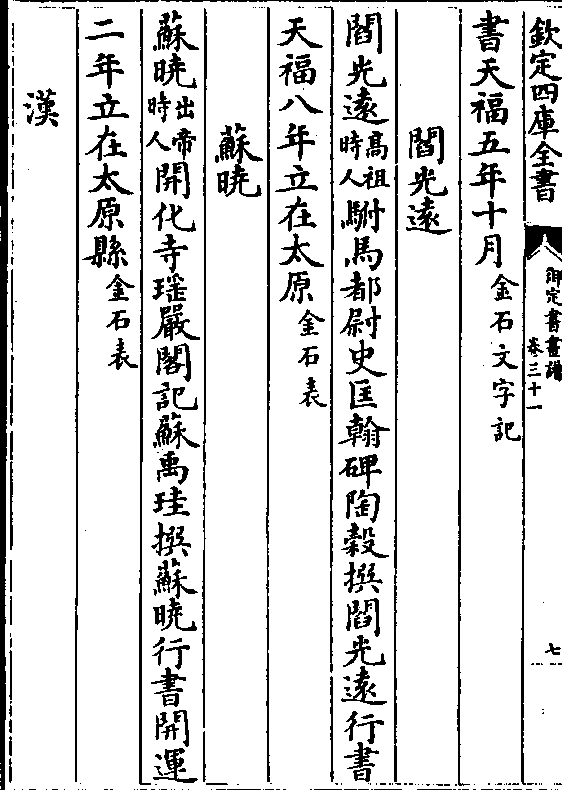 欽定四庫全書
御定書畫譜
卷三十一
七
書天福五年十月金石文字記
閻光遠
閻光遠高祖時人駙馬都尉史匡翰碑陶糓撰閻光遠行書
天福八年立在太原金石表
蘇曉
蘇曉出帝時人開化寺瑶嚴閣記蘇禹珪撰蘇曉行書開運
二年立在太原縣金石表
漢